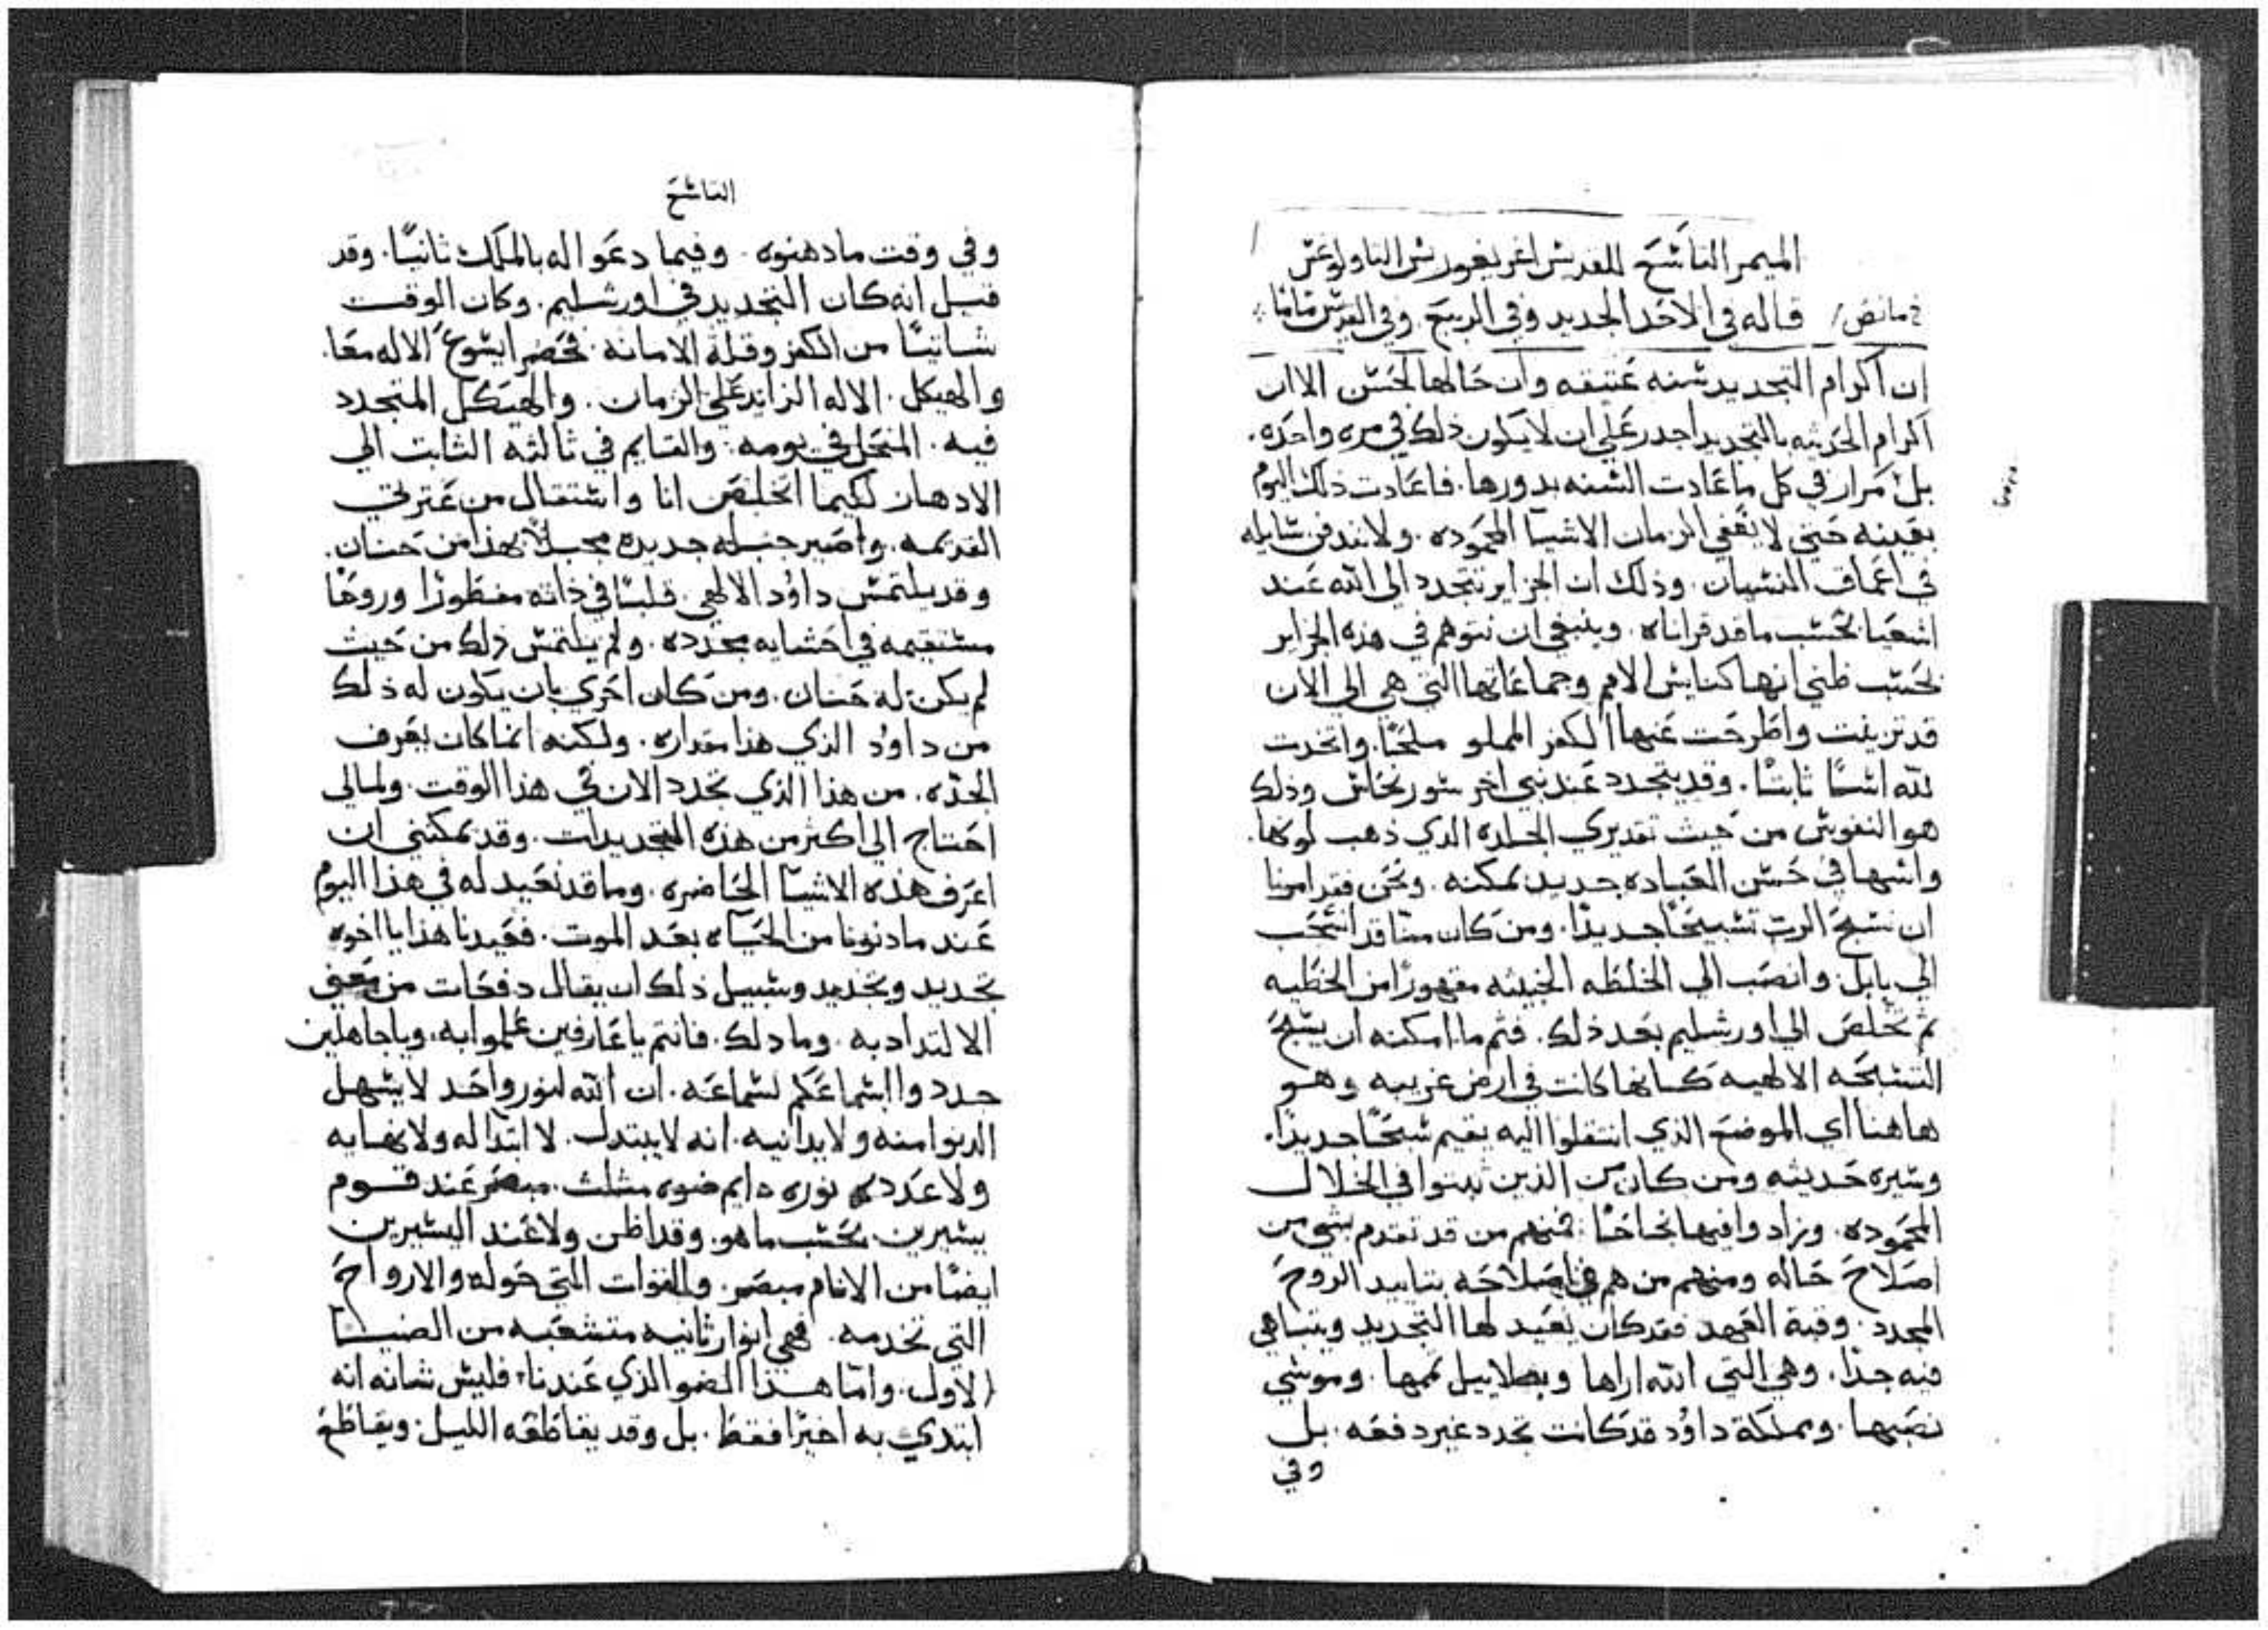 الميمر التاسع للقديس اغريغوريس التاولوغس
قاله في الاحد الجديد وفي الربيع. وفي القديس ماما
ان اكرام التجديد سنه عتيقه وان حالها لحسن الا ان
اكرام الحديثه بالتجديد اجدر علي ان لا يكون ذلك في مره واحده.
بل مرار في كل ما عادت السنه بدورها. فاعادت ذلك اليوم
بعينه حتي لا يعفي الزمان الاشيا المحموده. ولا تندفن سايله
في اعماق النسيان. وذلك ان الجزاير تتجدد الي الله عند
اشعيا بحسب ما قد قراناه. وينبغي ان نتوهم في هذه الجزاير
بحسب ظني انها كنايس الامم وجماعاتها التي هي الي الان
قد تزينت واطرحت عنها الكفر المملو ملحًا. واتخدت
لله اسسًا ثابتًا. وقد يتجدد عند نبي اخر سور نحاس وذلك
هو النفوس من حيث تقديري الجلده الذي ذهب لونها.
واسها في حسن العباده جديد تمكنه. ونحن فقد امرنا
ان نسبح الرب تسبيحًا جديدًا. ومن كان منا قد انسحب
الي بابل وانصب الي الخلطه الخبيثه مقهورًا من الخطيه
ثم تخلص الي اورشليم بعد ذلك. فثم ما امكنه ان يسبح
التسبحه الالهيه كانها كانت في ارض غريبه وهو
هاهنا اي الموضع الذي انتقلوا اليه يقيم سبحًا جديدًا.
وسيره حديثه ومن كان من الذين ثبتوا في الخلال
المحموده. وزادوا فيها نجاحًا. فمنهم من قد تقدم بشي من
اصلاح حاله ومنهم من هم في اصلاحه بتاييد الروح
المجدد. وقبة العهد فقد كان يعيد لها التجديد ويتباهي
فيه جدًا. وهي التي الله اراها وبصلاييل تممها. وموسي
نصبها. ومملكة داوُد قد كانت تجدد غير دفعه. بل
وفي
التاسع
وفي وقت ما دهنوه. وفيما دعوا له بالملك ثانيًا. وقد
قيل انه كان التجديد في اورشليم. وكان الوقت
شاتيًا من الكفر وقلة الامانه. فحضر ايسوع الاله معًا.
والهيكل. الاله الزايد علي الزمان. والهيكل المتجدد
فيه. المنحل في يومه. والقايم في ثالثه الثابت الي
الادهار لكيما اتخلص انا واستقال من عترتي
القديمه. واصير جبله جديده مجبلاً بهذا من حنان.
وقد يلتمس داوُد الالهي. قلبًا في ذاته مفطورًا وروحًا
مستقيمه في احشايه مجدده. ولم يلتمس ذلك من حيث
لم يكن له حنان. ومن كان احري بان يكون له ذلك
من داوُد الذي هذا مقداره. ولكنه انما كان يعرف
الجدّه. من هذا الذي تجدد الان في هذا الوقت. ولما لي
احتاج الي اكثر من هذه التجديدات. وقد يمكنني ان
اعرف هذه الاشيا الحاضره. وما قد نعيد له في هذا اليوم
عند ما دنونا من الحياه بعد الموت. فعيدنا هذا يا اخوه
تجديد وتجديد وسبيل ذلك ان يقال دفعات من معني
الالتداد به. وما دلك. فانتم يا عارفين علموا به. ويا جاهلين
جددوا اسماعكم لسماعه. ان الله لنور واحد لا يسهل
الدنوا منه ولا يدانيه. انه لا يبتدل. لا ابتدا له ولا نهايه
ولا عدد له نوره دايم ضوه مثلث. مبصر عند قوم
يسيرين بحسب ما هو. وقد اظن ولا عند اليسيرين
ايضًا من الانام مبصر. والقوات التي حوله والارواح
التي تخدمه. فهي انوار ثانيه متشعبه من الضيا
الاول. واما هذا الضو الذي عندنا. فليس شانه انه
ابتدي به اخيرًا فقط. بل وقد يقاطعه الليل. ويقاطع